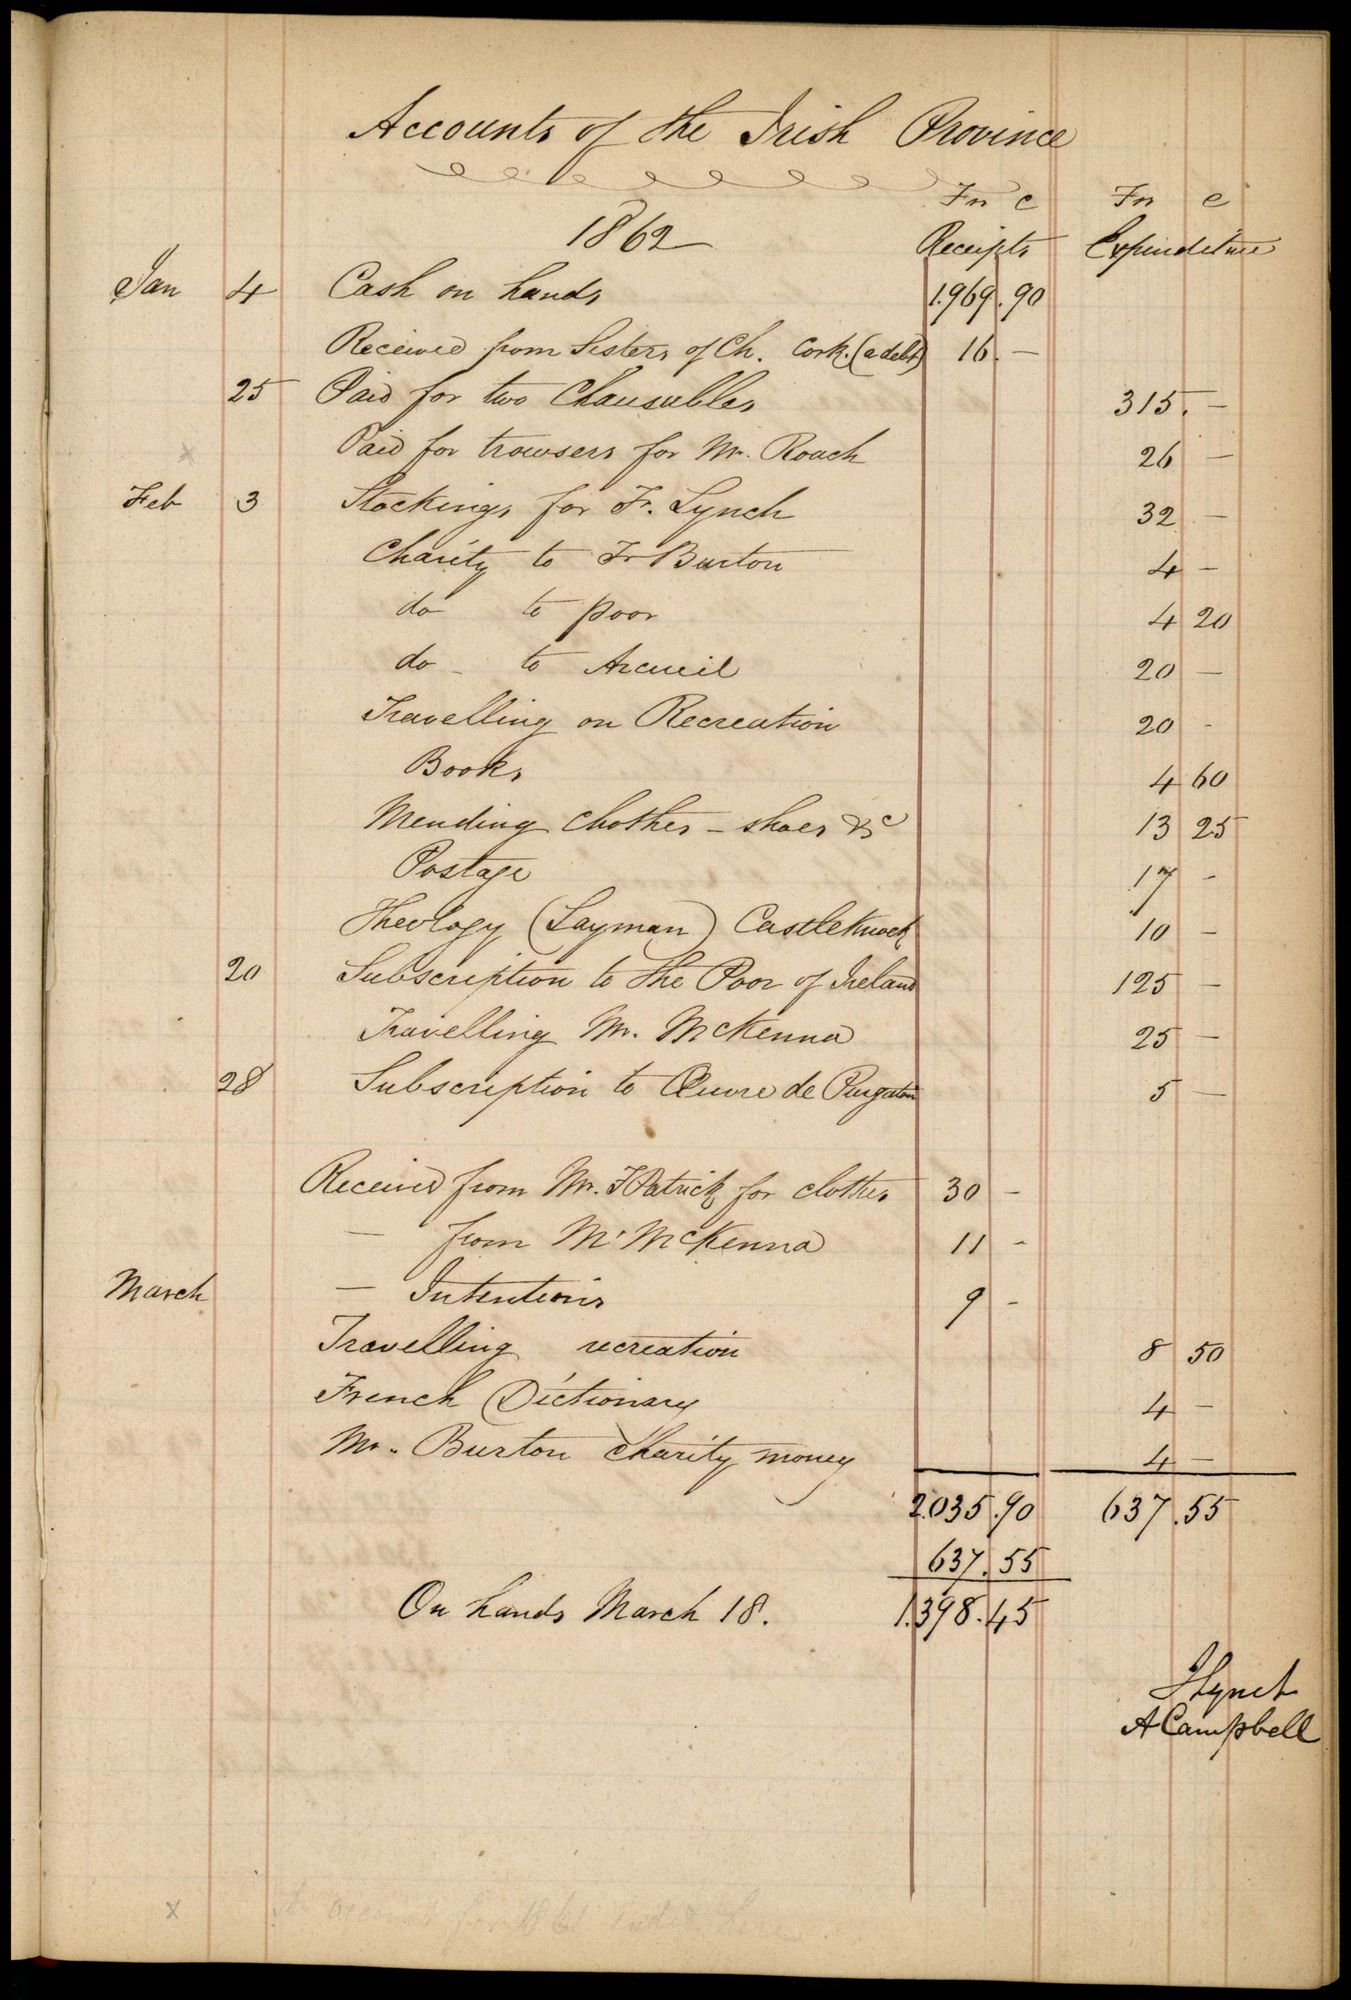 Accounts of the Irish Province
Frs c Frs c
1862 Receipts Expenditure
Jan 4 Cash on hands 1.969.90
Received from Sisters of Ch. Cork. (a debt) 16. —
25 Paid for two Chausubles 315. —
Paid for trowsers for Mr. Roach 26 —
Feb 3 Stockings for Fr. Lynch 32 —
Charity to Fr Burton 4 —
do to poor 4 20
do - to Arcueil 20 —
Travelling on Recreation 20 -
Books 4 60
Mending clothes - shoes &c 13 25
Postage 17 -
Theology (Layman) Castleknock 10 —
20 Subscription to the Poor of Ireland 125 —
Travelling Mr. McKenna 25 —
28 Subscription to Œuvre de Purgatoire 5 —
Received from Mr. FPatrick for clothes 30 -
— from Mr McKenna 11 -
March — Intentions 9 -
Travelling recreation 8 50
French Dictionary 4 —
Mr. Burton charity money 4 —
2.035.90 637.55
637.55
On hands March 18. 1.398.45
JLynch
ACampbell
x account for 1861